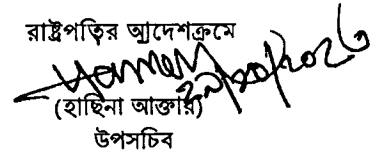 রাষ্ট্রপতির আদেশক্রমে
(হাছিনা আক্তার)
উপসচিব